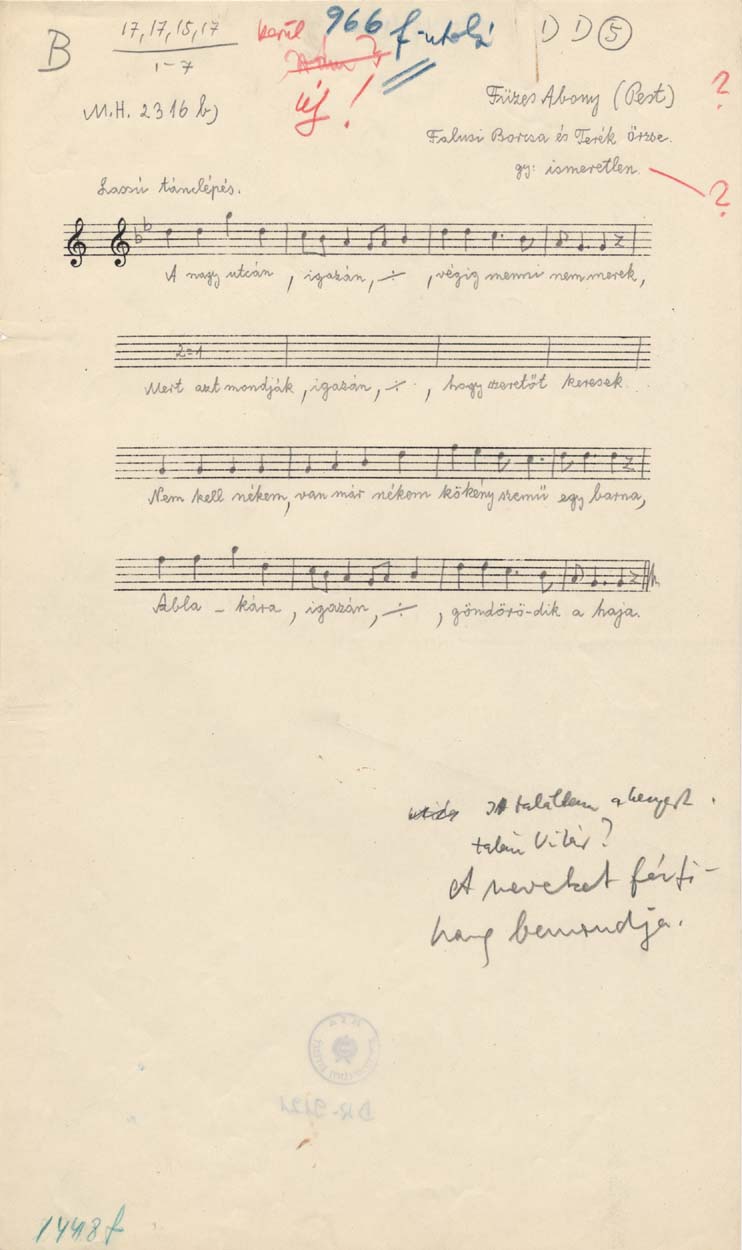 B
17, 17, 15, 17
1-7
kerül 966 f-utolsó
új!
D D 5
M.H. 2316 b)
Füzes Abony (Pest) ?
Falusi Borcsa és Terék Örzse.
gy: ismeretlen. ?
Lassú tánclépés.
A nagy utcán, igazán, ·/· , végig menni nem merek,
2=1
Mert azt mondják, igazán, ·/· , hogy szeretőt keresek.
Nem kell nékem, van már nékem kökény szemű egy barna,
Abla - kára, igazán, ·/· , göndörö-dik a haja.
találtam a
talán Vikár?
A neveket férfi-
hang bemondja.
DR-9121
1448 f